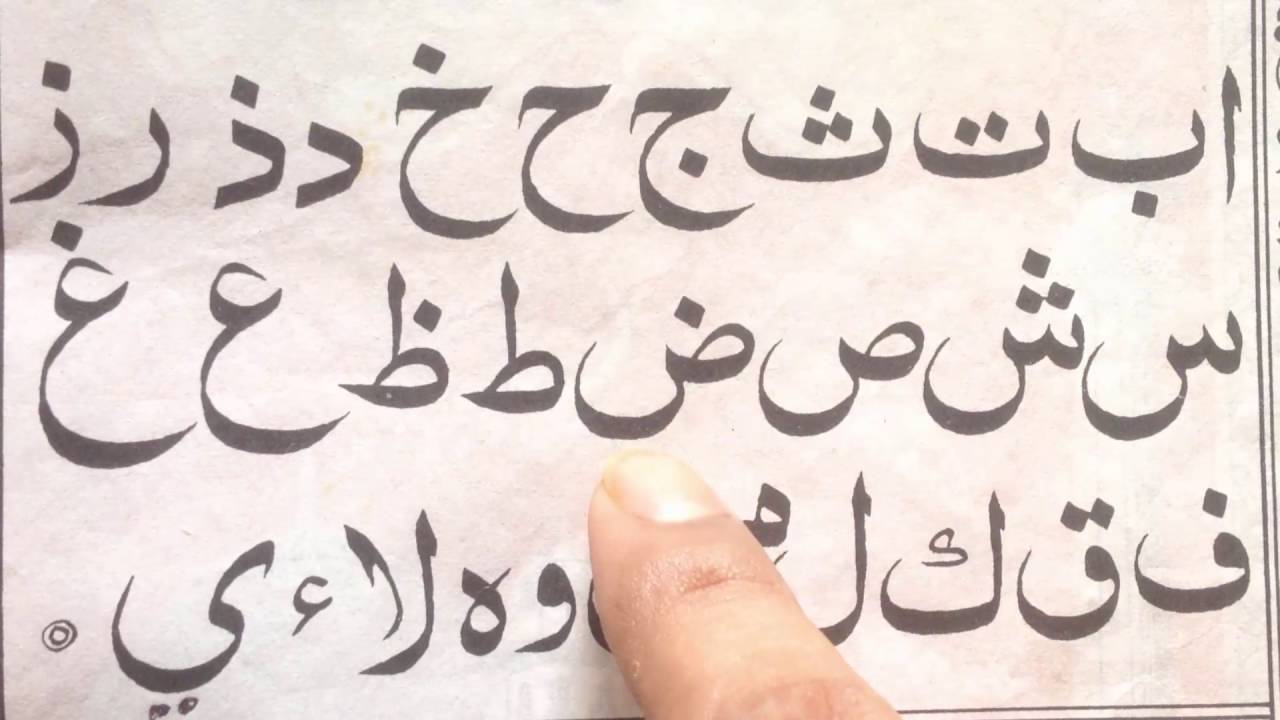 ا ب ت ث ج ح خ د ذ ر ز
س ش ص ض ط ظ ع غ
ف ق ك ل م و ه لا ء ي